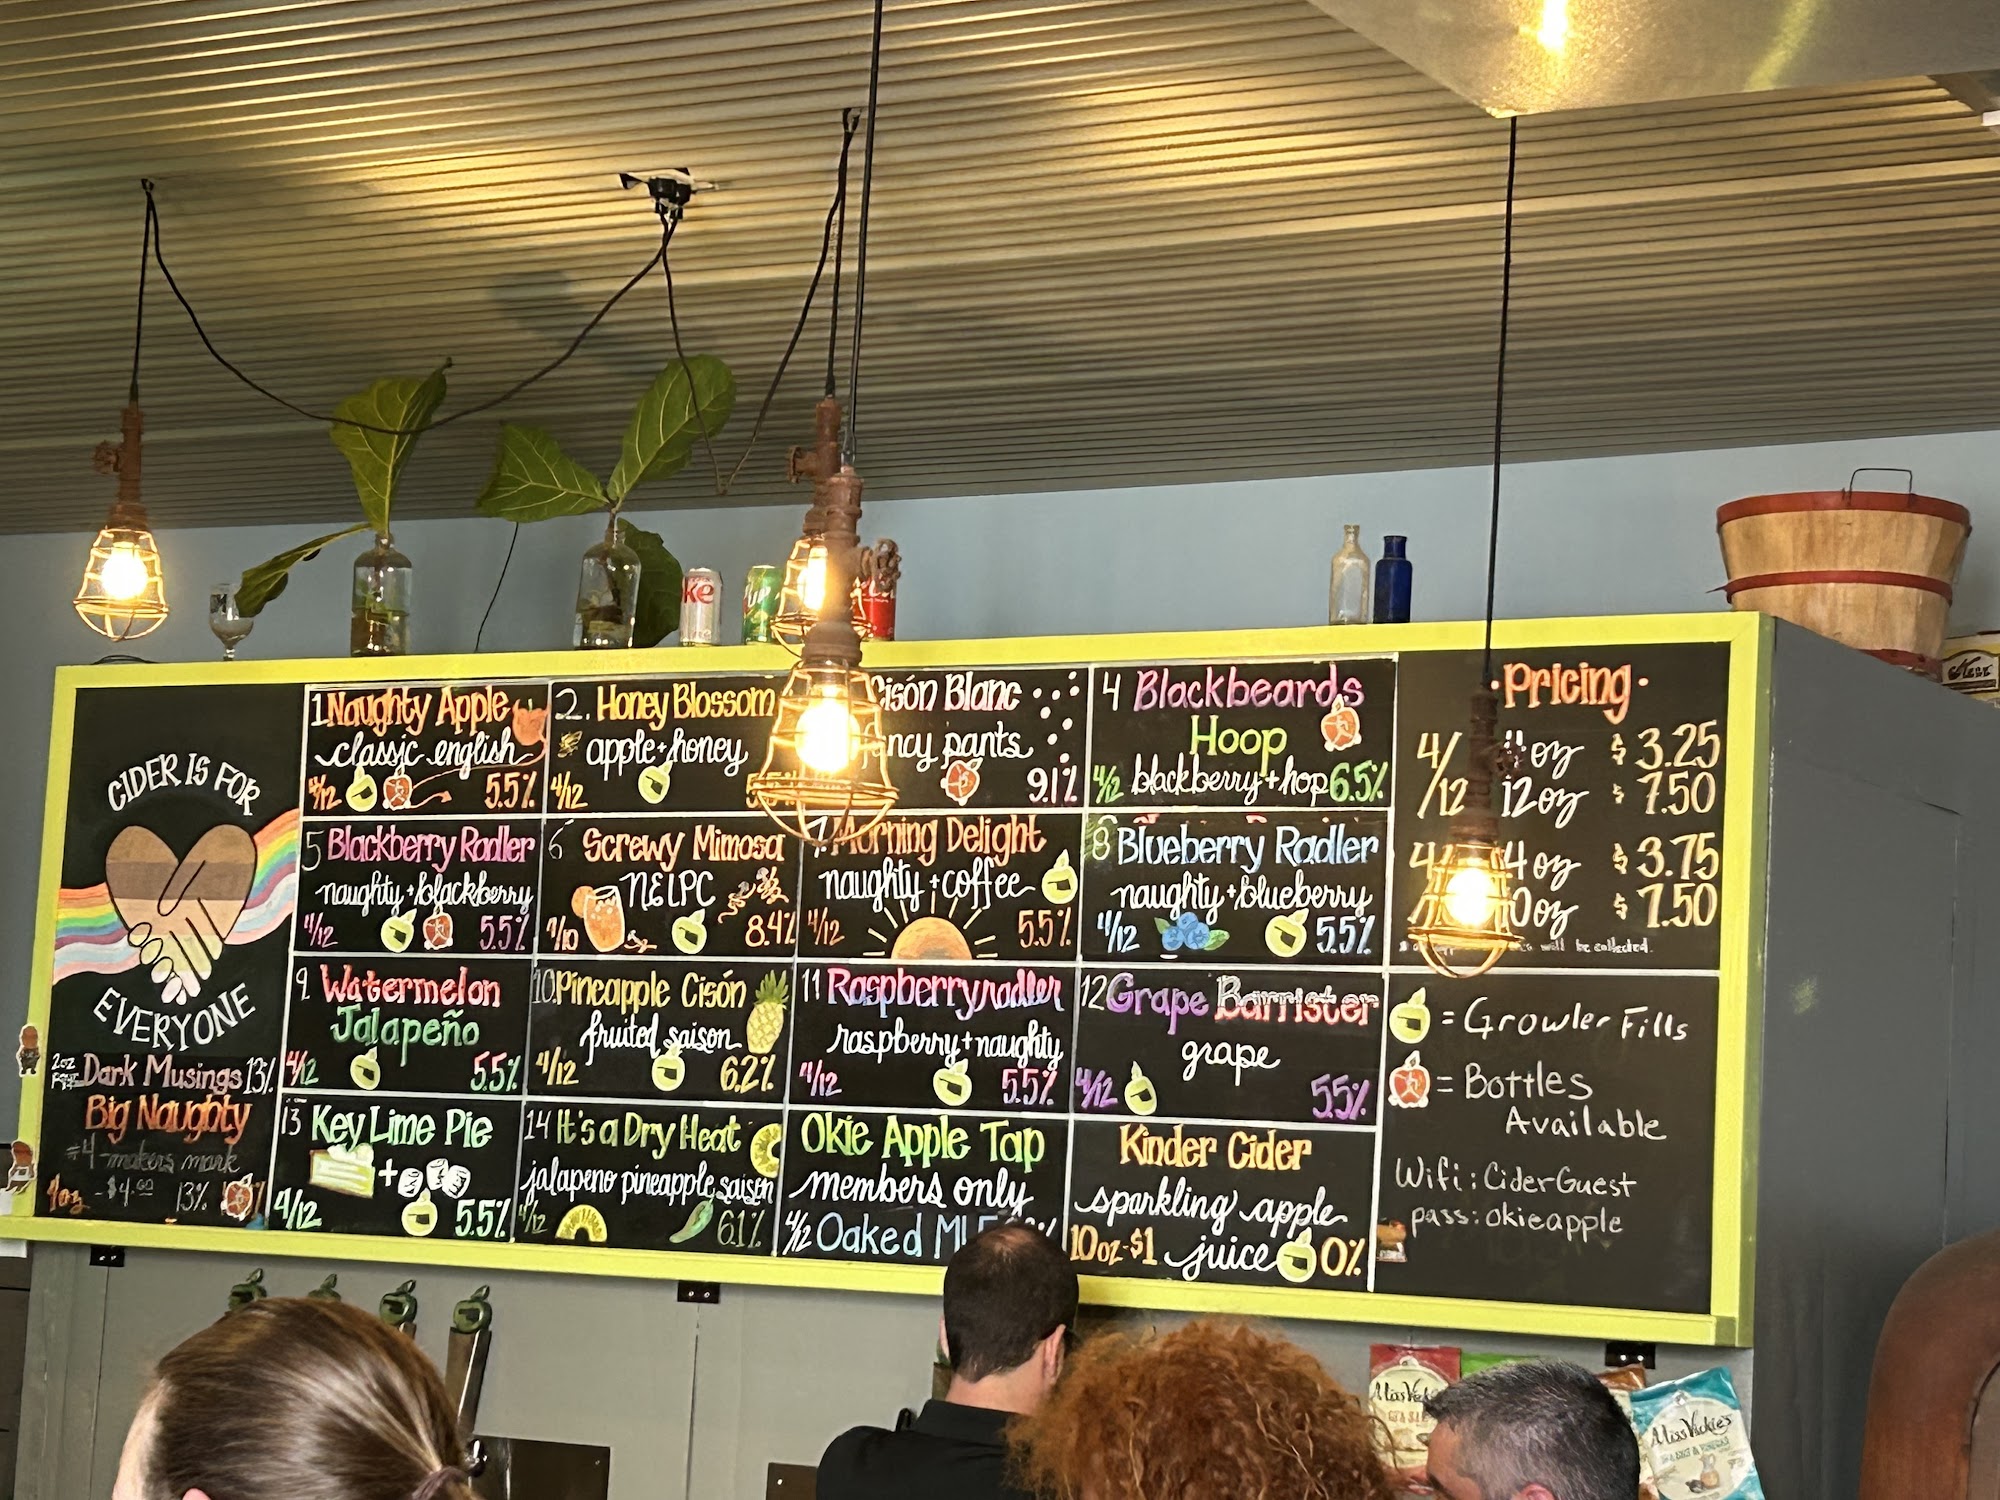 CIDER IS FOR
EVERYONE
2oz
Dark Musings 13%
Big Naughty
#4 makers mark
4oz - $4.00 13%
1 Naughty Apple
classic english
4/12 5.5%
2. Honey Blossom
apple + honey
4/12
Cisón Blanc
fancy pants
9.1%
4 Blackbeards
Hoop
4/12 blackberry + hop 6.5%
5 Blackberry Radler
naughty + blackberry
4/12 5.5%
6 Screwy Mimosa
NELPC
4/10 8.4%
7 Morning Delight
naughty + coffee
4/12 5.5%
8 Blueberry Radler
naughty + blueberry
4/12 5.5%
9 Watermelon
Jalapeño
4/12 5.5%
10 Pineapple Cisón
fruited saison
4/12 6.2%
11 Raspberry radler
raspberry + naughty
4/12 5.5%
12 Grape Barrister
grape
4/12 5.5%
13 Key Lime Pie
+
4/12 5.5%
14 It's a Dry Heat
jalapeno pineapple saison
4/12 6.1%
Okie Apple Tap
members only
4/12 Oaked
Kinder Cider
sparkling apple
10oz-$1 juice 0%
·Pricing·
4/ 4oz $3.25
/12 12oz $7.50
4oz $3.75
10oz $7.50
will be collected.
= Growler Fills
= Bottles
Available
Wifi: CiderGuest
pass: okieapple
Miss Vickie's